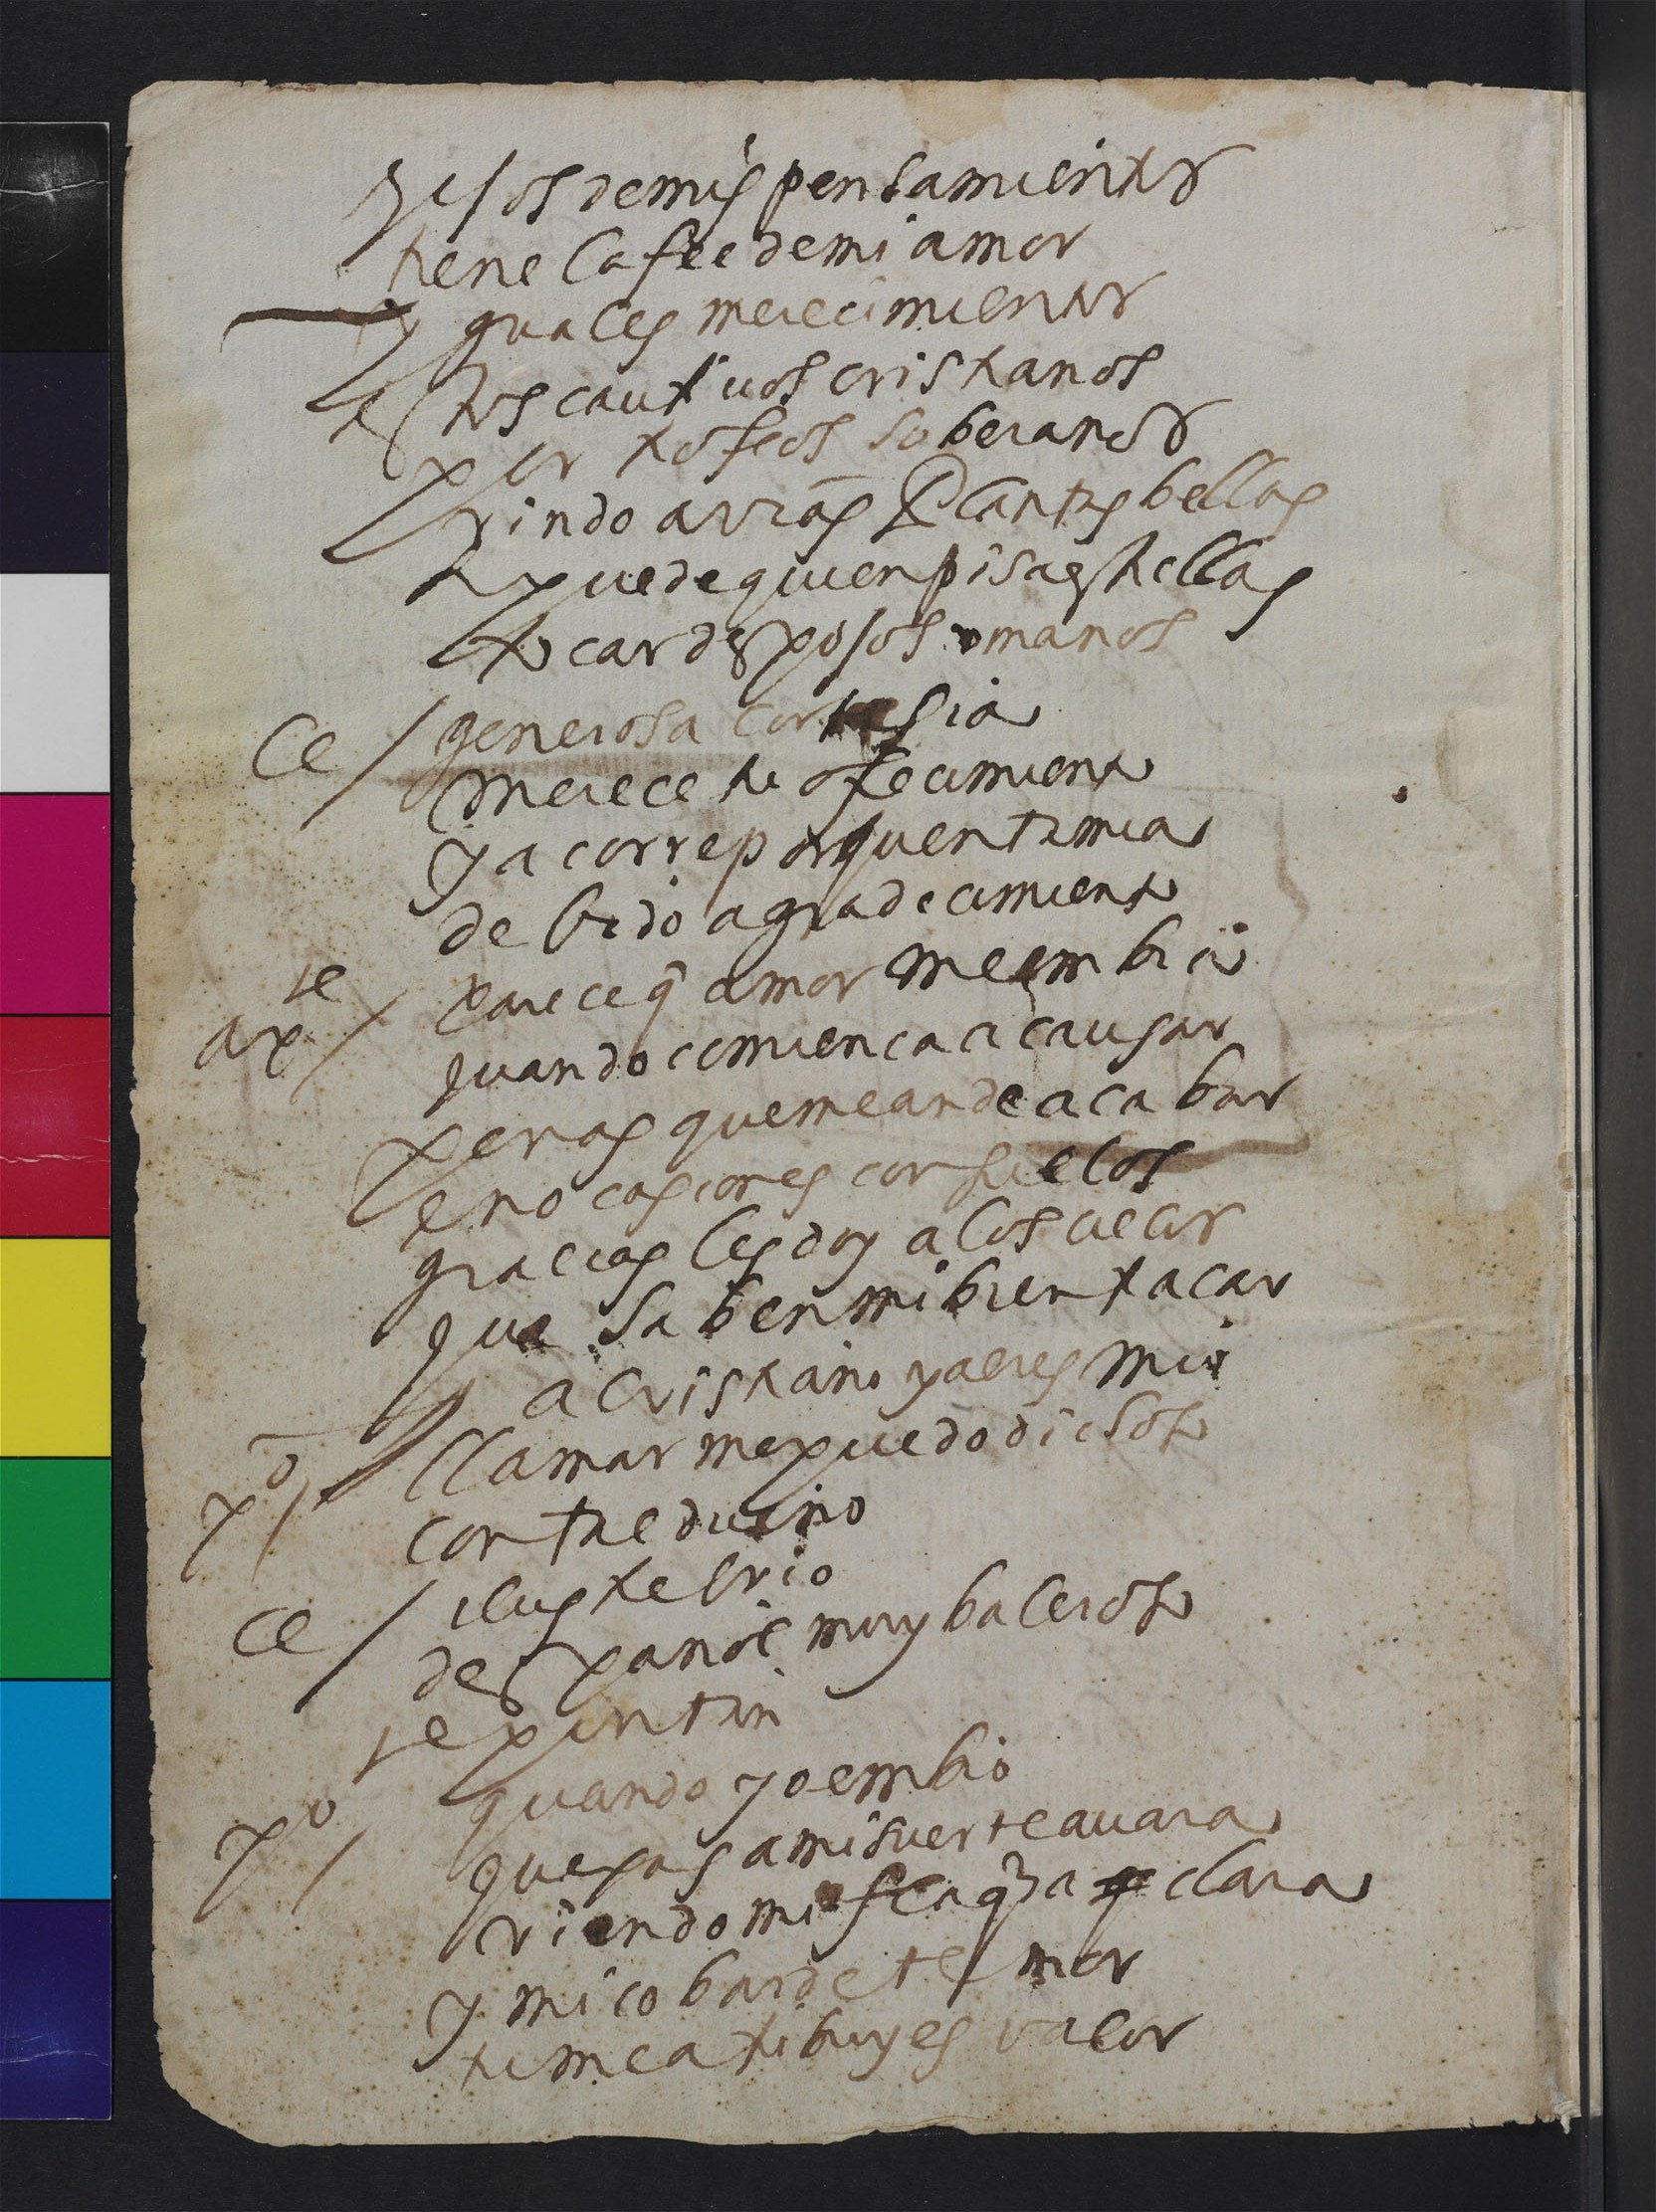 y esos de mis pensamientos
tiene la fee de mi amor
yguales merecimientos
estos cautiuos cristianos
por trofeos soberanos
rindo a vras plantas bellas
q puede quien pisa estrellas
tocar despojos umanos
Ce / generosa cortesia
merece tu ofrecimiento
ya corre por quenta mia
debido agradecimiento
arxe / parece q amor me embia
quando comienca a causar
penas que me an de acabar
en ocasiones consuelos
gracias les doy a los cielos
que saben mi bien tracar
a cristiano ya eres mio
po / llamarme puedo dichoso
con tal dueño
Ce / ilustre brio
despañol muy baleroso
te pintan
po / quando yo embio
quexas a mi suerte auara
viendo mi flaqza clara
y mi cobarde temor
tu me atribuyes valor